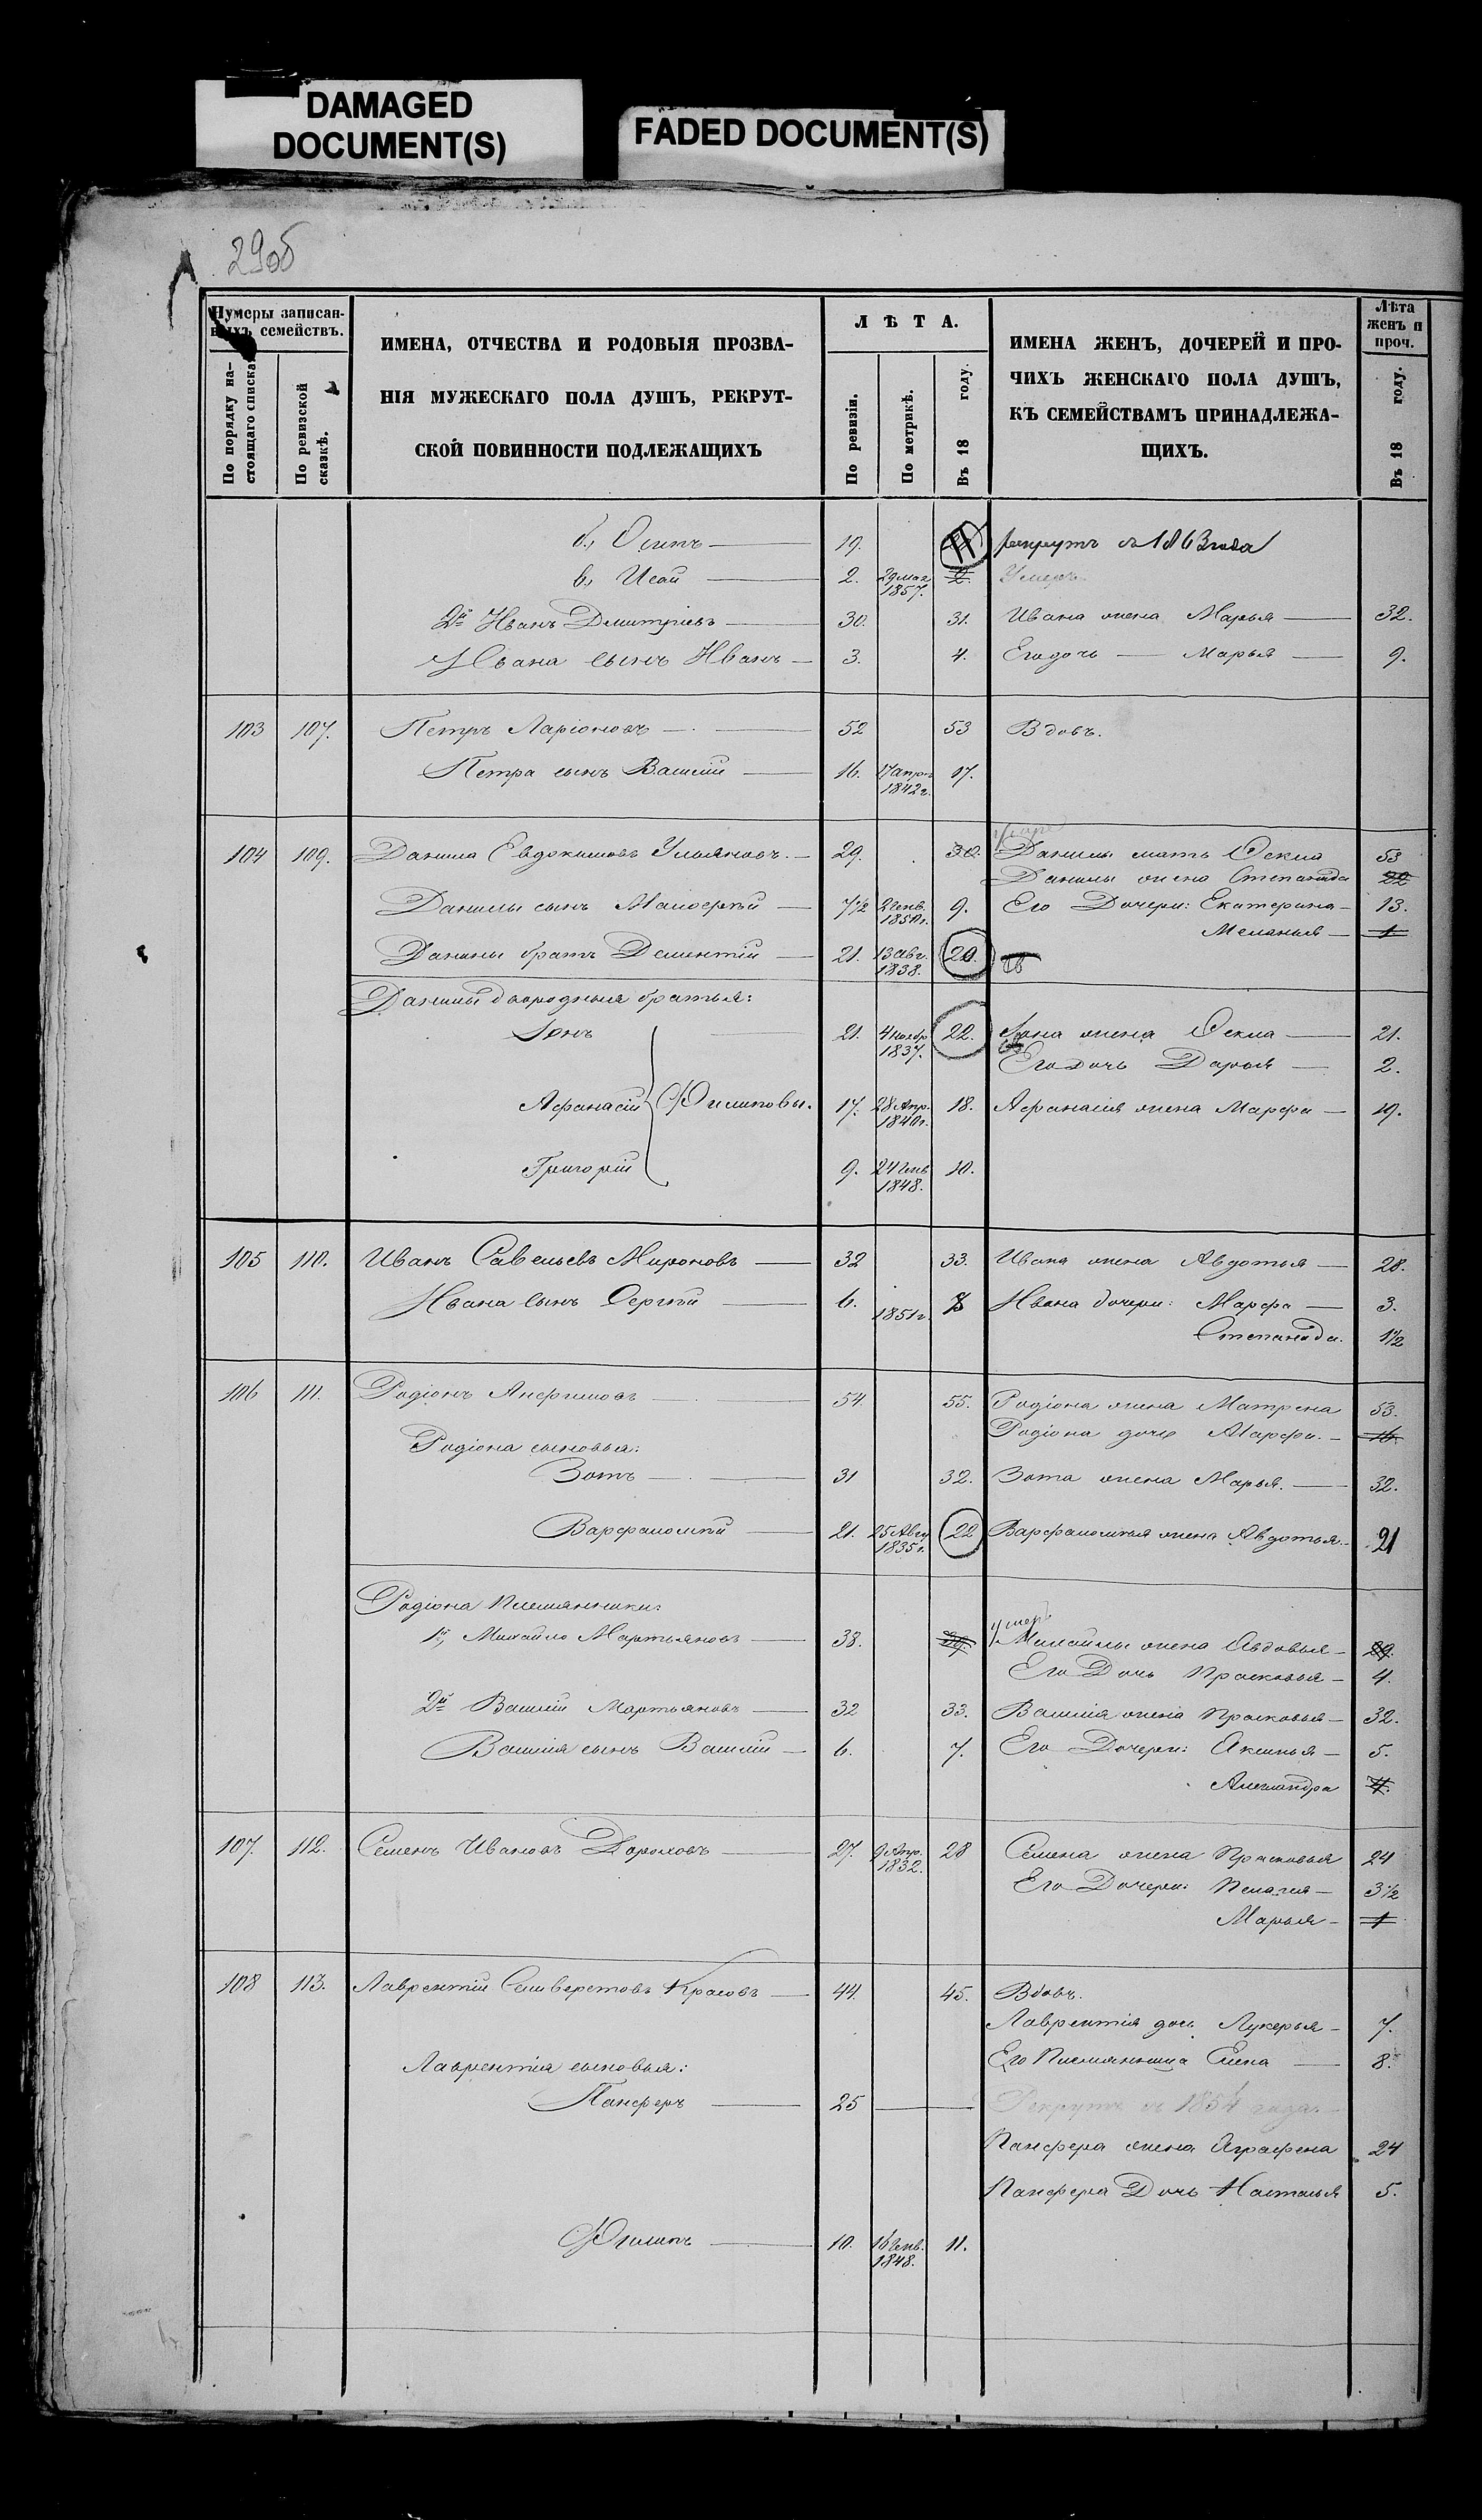 DAMAGED
DOCUMENT(S)
FADED DOCUMENT(S)
29об
Нумеры записан-
ныхъ семействъ.
По порядку на-
стоящаго списка
По ревизской
сказкѣ.
ИМЕНА, ОТЧЕСТВА И РОДОВЫЯ ПРОЗВА-
НІЯ МУЖЕСКАГО ПОЛА ДУШЪ, РЕКРУТ-
СКОЙ ПОВИННОСТИ ПОДЛЕЖАЩИХЪ
ЛѢТА.
По ревизіи.
По метрикѣ.
Въ 18 году.
ИМЕНА ЖЕНЪ, ДОЧЕРЕЙ И ПРО-
ЧИХЪ ЖЕНСКАГО ПОЛА ДУШЪ,
КЪ СЕМЕЙСТВАМЪ ПРИНАДЛЕЖА-
ЩИХЪ.
Лѣта
женъ и
проч.
Въ 18 году.
б., Осипъ — 19. рекрутъ съ 1863 года
в., Исай — 2. 29 мая 1857. 2. Умеръ.
2й Иванъ Дмитріевъ — 30. 31. Ивана жена Марья — 32.
Ивана сынъ Иванъ — 3. 4. Его дочь — Марья — 9.
103 107. Петръ Ларіоновъ — 52 53 Вдовъ.
Петра сынъ Василій — 16. 17 апр. 1842 г. 17.
104 109. Данила Евдокимовъ Ульяновъ. — 29. 30. Данилы мать Фекла 53
Данилы жена Степанида 22
Данилы сынъ Малосертъй — 7½ 2 Генв. 1850 г. 9. Его Дочери: Екатерина — 13.
Меланья — 1
Данилы братъ Дементій — 21. 13 Авг. 1838. 20.
Данилы двоюродные братья:
Іонъ — 21. 4 ноябр 1837. 22. Іона жена Фекла — 21.
Его дочь Дарья — 2.
Афанасій Филиповы. 17. 28 Апр. 1840 г. 18. Афанасія жена Марфа — 19.
Григорій 9. 24 Генв 1848. 10.
105 110. Иванъ Савельевъ Мироновъ — 32 33. Ивана жена Авдотья — 28.
Ивана сынъ Сергѣй — 6. 1851 г. Ивана дочери: Марфа — 3.
Степанида. 1½
106 111. Родіонъ Анфимовъ — 54. 55. Родіона жена Матрена 53.
Родіона дочь Марфа. — 16.
Родіона сыновья:
Зотъ — 31 32. Зота жена Марья. — 32.
Варфаломѣй — 21. 25 Авгу 1835 г. 22 Варфаломѣя жена Авдотья. — 21
Родіона племянники:
1й, Михайло Мартьяновъ — 38. 39. Михайлы жена Авдотья — 29.
Умеръ
Его Дочь Прасковья — 4.
2й Василій Мартьяновъ — 32 33. Василія жена Прасковья — 32.
Василія сынъ Василій — 6. 7. Его Дочери: Аксинья — 5.
Александра
107. 112. Семенъ Ивановъ Дороховъ — 27. 9 Апр. 1832. 28 Семена жена Прасковья 24
Его Дочери: Пелагея — 3½
Марья — 1
108 113. Лаврентій Селиверстовъ Красовъ — 44. 45. Вдовъ.
Лаврентія дочь Лукерья — 7.
Лаврентія сыновья: Его Племянница Елена — 8.
Панферъ — 25 — Рекрутъ съ 1854 года.
Панфера жена Аграфена 24
Панфера Дочь Наталья 5.
Филипъ — 10. 16 Генв. 1848. 11.